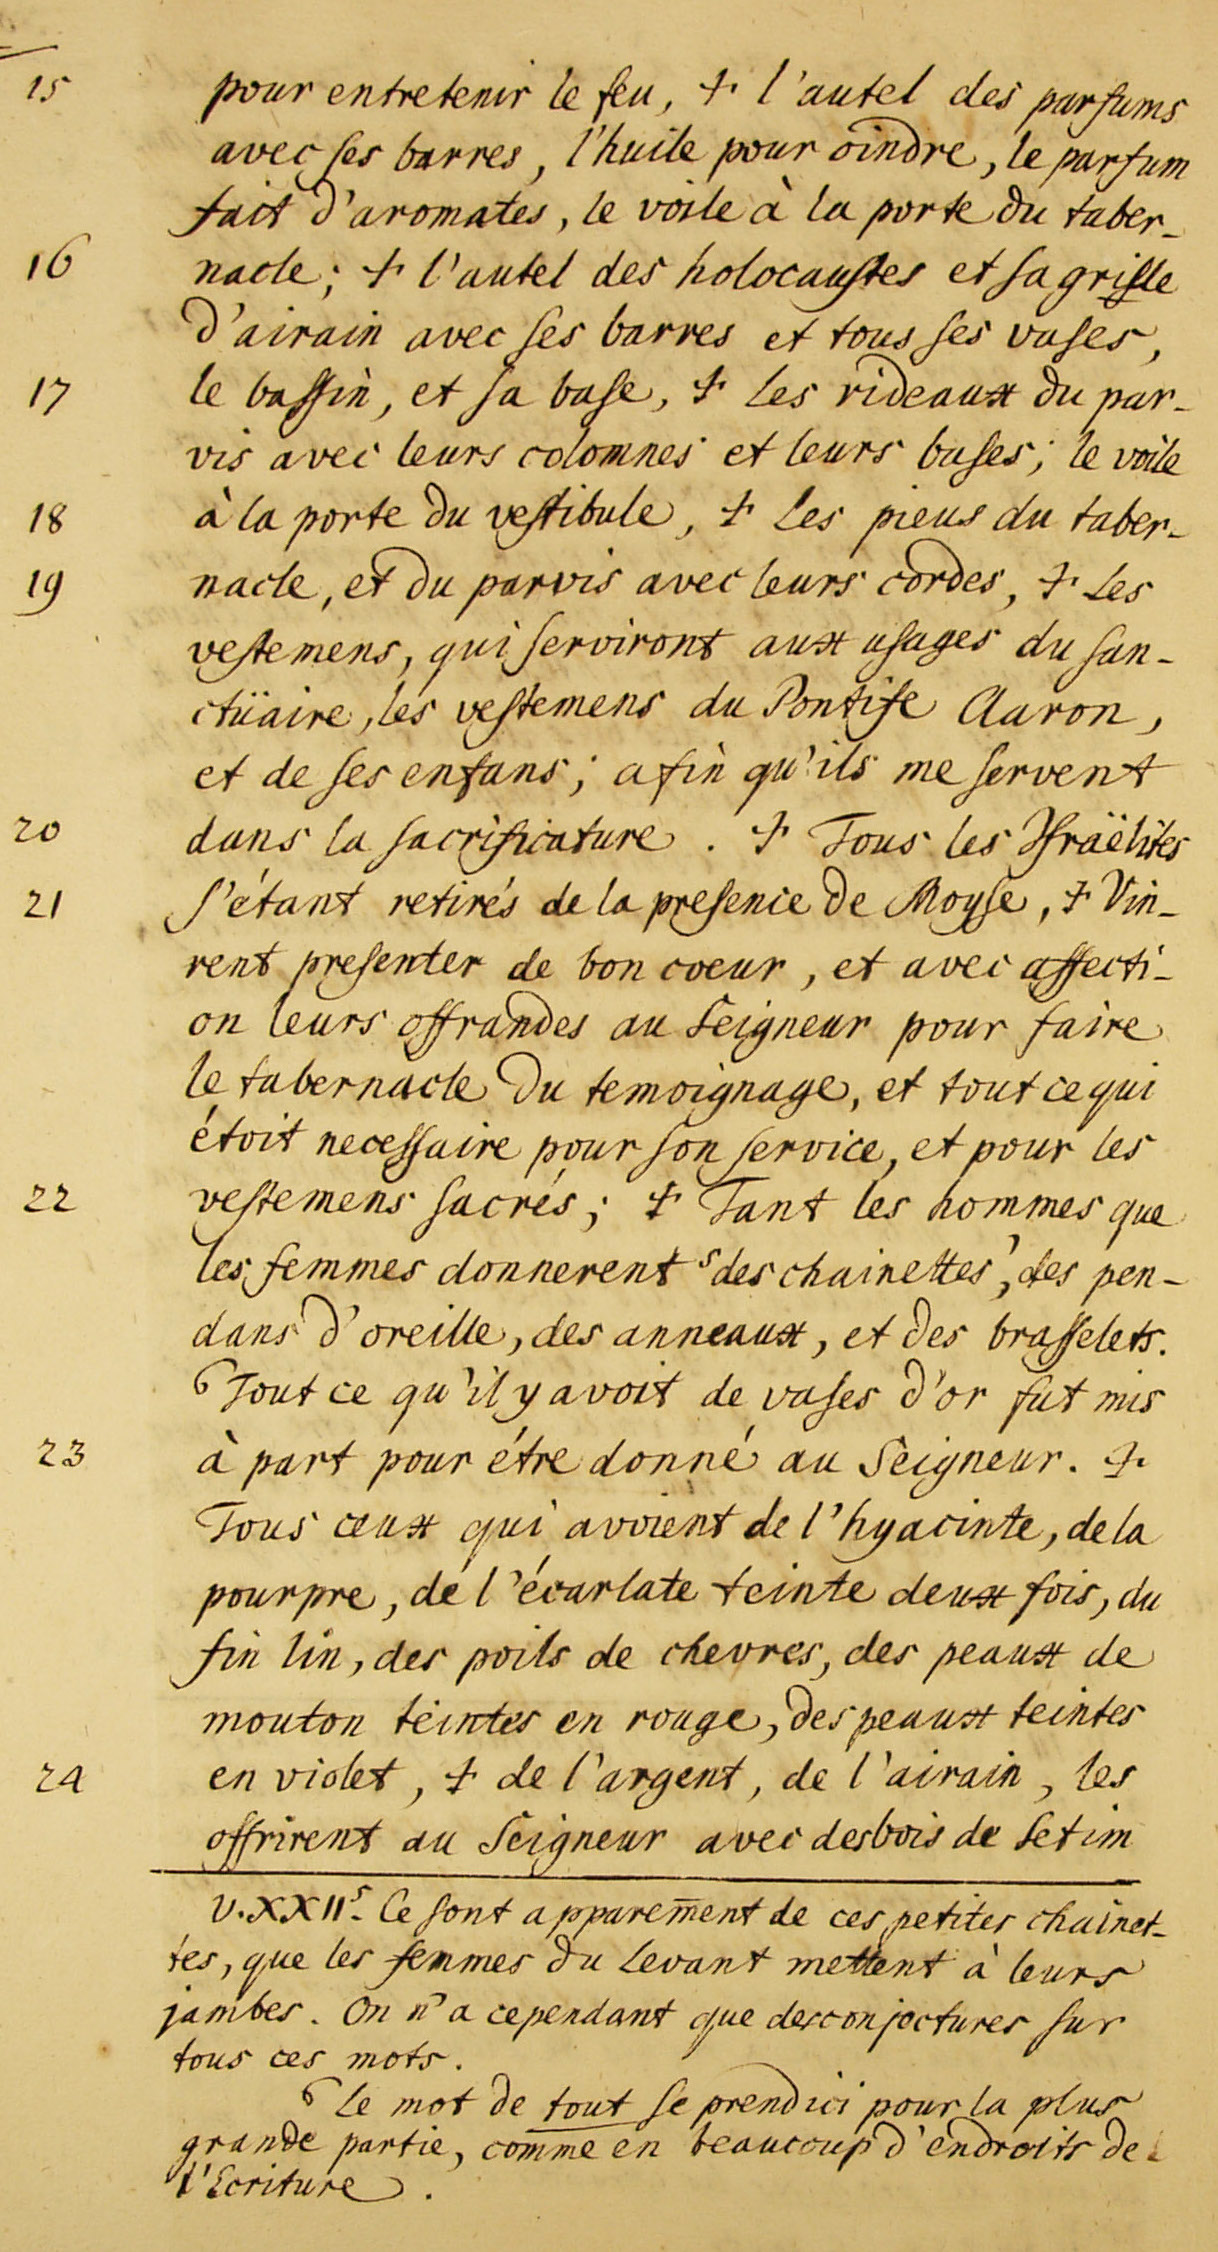 15 pour entretenir le feu, + l'autel des parfums
avec ses barres, l'huile pour oindre, le parfum
fait d'aromates, le voile à la porte du taber-
16 nacle; + l'autel des holocaustes et sa grisle
d'airain avec ses barres et tous ses vases,
17 le bassin, et sa base, + Les rideaux du par-
vis avec leurs colomnes et leurs bases; le voile
18 à la porte du vestibule, + Les pieus du taber-
19 nacle, et du parvis avec leurs cordes, + Les
vestemens, qui serviront aux usages du san-
ctüaire, les vestemens du Pontife Aaron,
et de ses enfans; afin qu'ils me servent
20 dans la sacrificature. + Tous les Israëlites
21 s'étant retirés de la presence de Moyse, + Vin-
rent presenter de bon coeur, et avec affecti-
on leurs offrandes au Seigneur pour faire
le tabernacle du temoignage, et tout ce qui
étoit necessaire pour son service, et pour les
22 vestemens sacrés; + Tant les hommes que
les femmes donnerent 5 des chainettes, des pen-
dans d'oreille, des anneaux, et des brasselets.
6 Tout ce qu'il y avoit de vases d'or fut mis
23 à part pour étre donné au Seigneur. +
Tous ceux qui avoient de l'hyacinte, de la
pourpre, de l'écarlate teinte deux fois, du
fin lin, des poils de chevres, des peaux de
mouton teintes en rouge, des peaux teintes
24 en violet, + de l'argent, de l'airain, les
offrirent au Seigneur avec des bois de Setim
V. XXII 5. Ce sont apparem̅ent de ces petites chainet-
tes, que les femmes du Levant mettent à leurs
jambes. On n'a cependant que des conjectures sur
tous ces mots.
6 Le mot de tout se prend ici pour la plus
grande partie, comme en beaucoup d'endroits de
l'Ecriture.